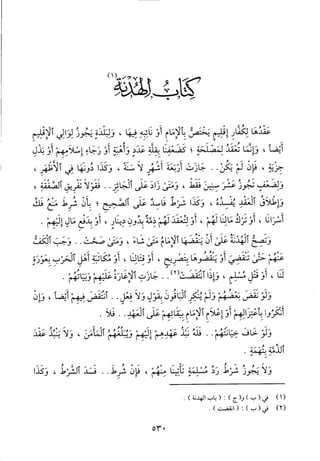 كتاب الهدنة (١)
عقدها لكفار إقليم يختص بالإمام أو نائبه فيها ، ولبلدة يجوز لوالي الإقليم
أيضاً ، وإنما تعقد لمصلحة ؛ كضعفنا بقلة عدد وأهبة أو رجاء إسلامهم أو بذل
جزية ، فإن لم يكن.. جازت أربعة أشهر لا سنة ، وكذا دونها في الأظهر ،
ولضعف تجوز عشر سنين فقط ، ومتى زاد على الجائز.. فقولا تفريق الصفقة ،
وإطلاق العقد يفسده ، وكذا شرط فاسد على الصحيح ؛ بأن شرط منع فك
أسرانا ، أو ترك مالنا لهم ، أو لتعقد لهم ذمة بدون دينار ، أو بدفع مال إليهم .
وتصح الهدنة على أن ينقضها الإمام متى شاء ، ومتى صحت.. وجب الكف
عنهم حتى تنقضي أو ينقضوها بتصريح ، أو قتالنا ، أو مكاتبة أهل الحرب بعورة
لنا ، أو قتل مسلم ، وإذا انتقضت(٢).. جازت الإغارة عليهم وبياتهم .
ولو نقض بعضهم ولم ينكر الباقون بقول ولا فعل.. انتقض فيهم أيضاً ، وإن
أنكروا باعتزالهم أو إعلام الإمام ببقائهم على العهد.. فلا .
ولو خاف خيانتهم.. فله نبذ عهدهم إليهم ويبلغهم المأمن ، ولا ينبذ عقد
الذمة بتهمة .
ولا يجوز شرط رد مسلمة تأتينا منهم ، فإن شرط.. فسد الشرط ، وكذا
(١) في (ب) و(ج) : ( باب الهدنة ) .
(٢) في (ب) : ( انقضت ) .
٥٣٠